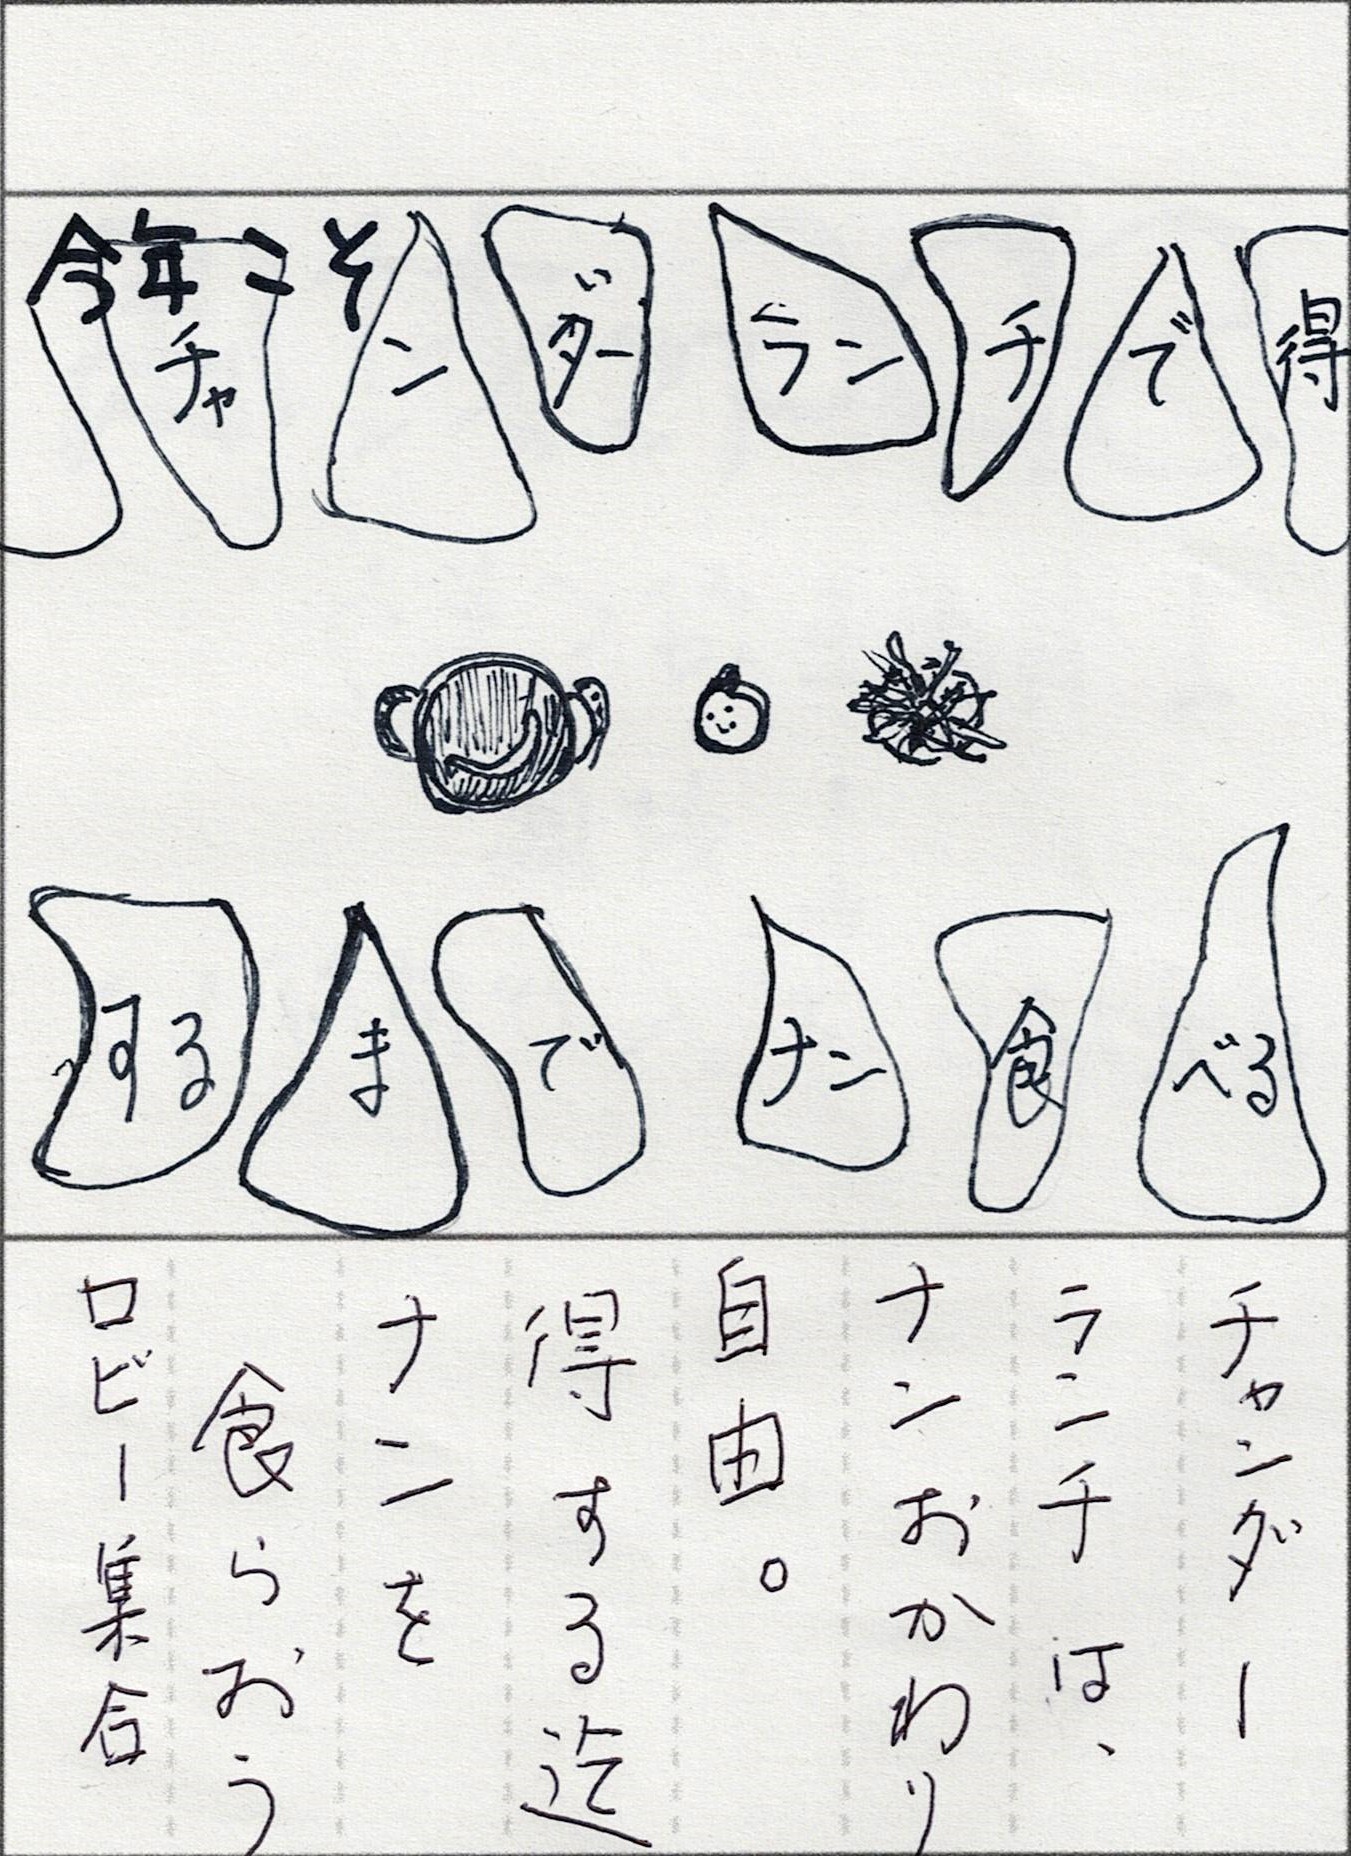 今年こそ
チャンダーランチで得
するまでナン食べる
チャンダー
ランチは、
ナンおかわり
自由。
得する迄
ナンを
食らおう
ロビー集合